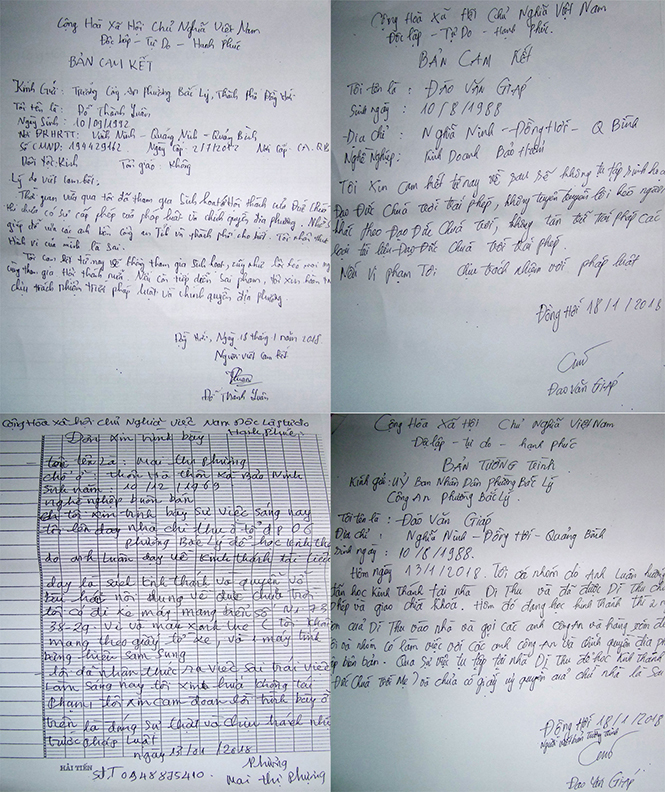 Cộng Hoà Xã Hội Chủ Nghĩa Việt Nam
Độc lập - Tự Do - Hạnh Phúc
BẢN CAM KẾT
Kính Gửi: Trưởng Công An Phường Bắc Lý, Thành Phố Đồng Hới.
Tôi tên là: Đỗ Thành Luân
Ngày Sinh: 10/09/1992
Nơi ĐKHKTT: Vĩnh Ninh - Quảng Ninh - Quảng Bình
Số CMND: 194429162. Ngày cấp: 2/7/2012 Nơi cấp: CA. QB
Dân Tộc: Kinh Tôn giáo: Không
Lý do viết cam kết:
Thời gian vừa qua tôi đã tham gia Sinh hoạt Hội thánh của Đức Chúa
có sự cấp phép của pháp luật và chính quyền địa phương. Nhờ
giúp đỡ của các anh bên công an Tỉnh và thành phố cho biết. Tôi nhận thức
hành vi của mình là sai.
Tôi cam kết từ nay về không tham gia sinh hoạt, cũng như lôi kéo mọi người
cùng tham gia Hội thánh nữa. Nếu còn tiếp diễn sai phạm, tôi xin hoàn toàn
chịu trách nhiệm trước pháp luật và chính quyền địa phương
Đồng Hới, Ngày 18 tháng 1 năm 2018.
Người viết cam kết
Đỗ Thành Luân
Cộng Hoà Xã Hội Chủ Nghĩa Việt Nam
Độc lập - Tự Do - Hạnh Phúc.
BẢN CAM KẾT
Tôi tên là: ĐÀO VĂN GIÁP
Sinh ngày: 10/8/1988
Địa chỉ: Nghĩa Ninh - Đồng Hới - Q Bình
Nghề Nghiệp: Kinh Doanh Bảo Hiểm
Tôi Xin Cam kết từ nay về sau sẽ không tụ tập sinh hoạt
Đạo Đức Chúa trời trái phép, không tuyên truyền lôi kéo người
khác theo Đạo Đức Chúa Trời, không tán trái phép các
loại tài liệu Đạo Đức Chúa Trời trái phép.
Nếu vi phạm Tôi chịu trách nhiệm với pháp luật
Đồng Hới 18/1/2018
Đào Văn Giáp
Cộng Hòa Xã hội Chủ Nghĩa Việt Nam Độc Lập Tự Do
Hạnh Phúc
Đơn xin trình bày
tôi tên Là: Mai Thị Phượng
chỗ ở thôn Hà thôn Xã Bảo Ninh
sinh năm 10/12/1969
nghề nghiệp buôn bán
tôi xin trình bày sự việc sáng nay
tôi lên đây nhà chị thu ở tổ dp
phường Bắc Lý để học kinh thánh
do anh Luân dạy về kinh thánh
đây là sách kinh thánh và quyển vở
nội dung về đức chúa trời
tôi có đi xe máy mang biển số 73
38-29. ví và màu xanh lục (tôi không
mang theo giấy tờ xe, và 1 máy tính
bảng hiệu sam sung
tôi đã nhận thức ra việc sai trái việc
làm sáng nay tôi xin hứa không tái
phạm, tôi xin cam đoan lời trình bày ở
trên là đúng sự thật và chịu trách nhiệm
trước pháp luật
ngày 13/01/2018
HẢI TIẾN
SĐT 0948835410. Phượng
Mai thị Phượng
Cộng Hòa Xã Hội Chủ Nghĩa Việt Nam
Độc lập - tự do - hạnh phúc
BẢN TƯỜNG TRÌNH
Kính gửi: UỶ Ban Nhân Dân Phường Bắc Lý
Công An Phường Bắc Lý.
Tôi tên là: ĐÀO VĂN GIÁP
Địa chỉ: Nghĩa Ninh - Đồng Hới - Quảng Bình
Sinh ngày: 10/8/1988.
Hôm ngày 13/1/2018. Tôi có nhóm do Anh Luân hướng
dẫn học Kinh Thánh tại nhà Dì Thu và đã được Dì Thu cho
phép và giao chìa khoá. Hôm đó đang học kinh thánh thì
của Dì Thu vào nhà và gọi các anh công An và hàng xóm
và nhóm có làm việc với các anh công An và chính quyền địa
lập biên bản. Qua sự việc tụ tập tại nhà Dì Thu để học kinh thánh
Đức Chúa trời Mẹ) và chưa có giấy uỷ quyền của chủ nhà là Sai
Đồng Hới 18/1/2018
Người viết bản tường trình
Đào Văn Giáp